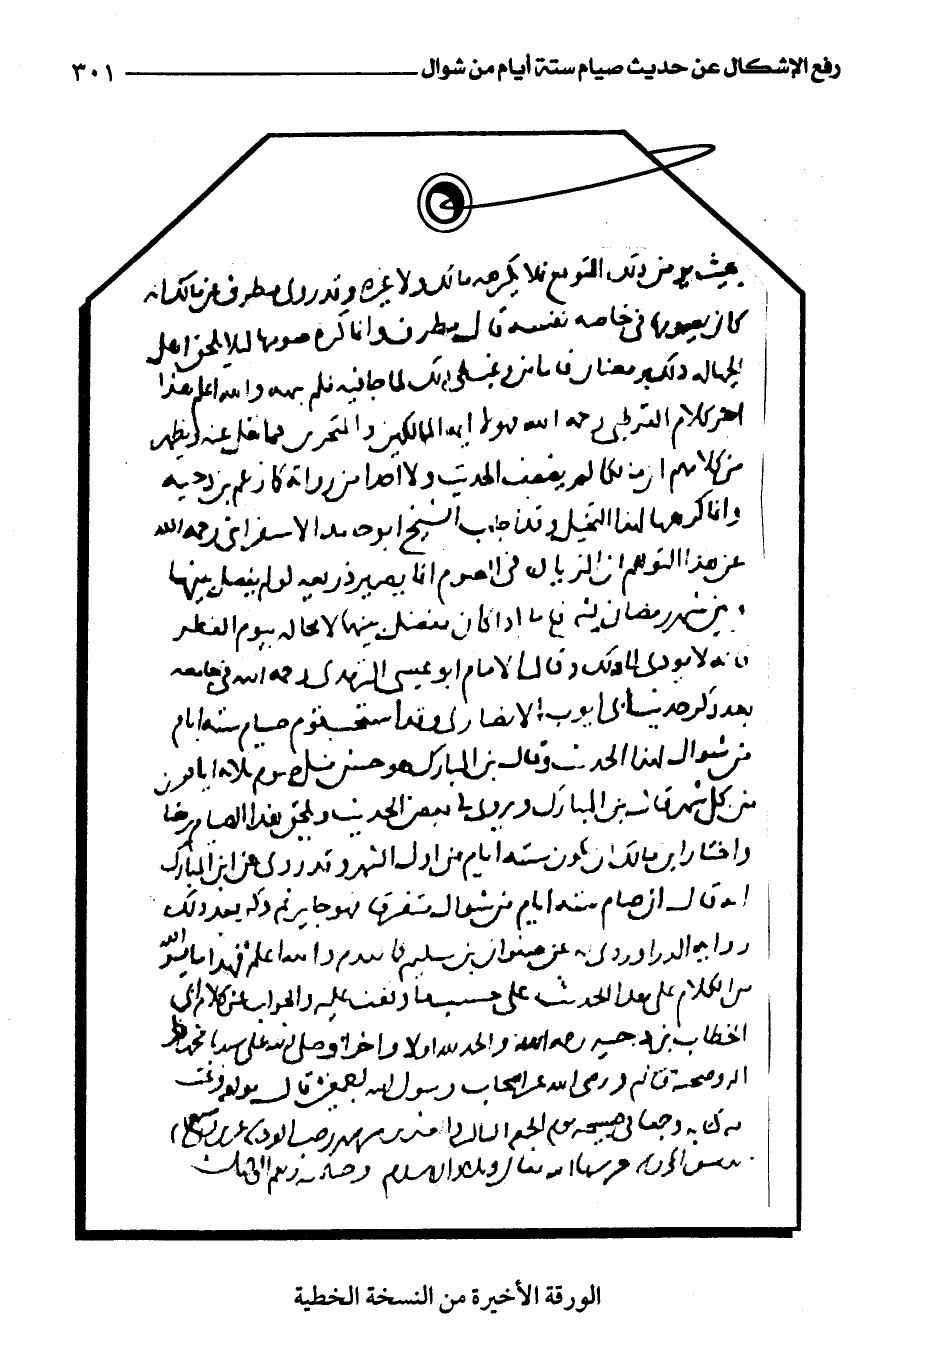 رفع الإشكال عن حديث صيام ستة أيام من شوال ٣٠١
بحيث يومن ذلك التوقع فلا يكرهه مالك ولا غيره وقد روى مطرف عن مالك انه
كان يصومها في خاصه نفسه قال مطرف وانما كره صومها ليلا يلحق اهل
الجهاله ذلك برمضان فاما من رغب في ذلك لما جا فيه فلم ينهه والله اعلم هذا
اخر كلام القرطبي رحمه الله فهولا ايمه المالكيين
من كلامهم ان مالكا لم يضعف الحديث ولا احدا من رواته كما زعم بن دحيه
وانما كرهها لهذا التخيل وقد اجاب الشيخ ابو حامد الاسفرايني رحمه الله
عن هذا التوهم ان الزياده في الصوم انما يصير ذريعه لو لم يفصل بينها
وبين شهر رمضان بشي فاما اذا كان يفصل بينهما لا محاله بيوم الفطر
فانه لا يودي الى ذلك وقال الامام ابو عيسى الترمذي رحمه الله في جامعه
بعد ذكر حديث ابي ايوب الانصاري وقد استحب قوم صيام سته ايام
من شوال لهذا الحديث وقال بن المبارك هو حسن مثل صوم ثلاثه ايام
من كل شهر قال بن المبارك ويروى في بعض الحديث ويلحق هذا الصيام برمضان
واختار ابن المبارك ان يكون سته ايام من اول الشهر وقد روى عن ابن المبارك
انه قال ان صام سته ايام من شوال متفرقا فهو جايز ثم ذكر بعد ذلك
روايه الدراوردي له عن صفوان بن سليم كما تقدم والله اعلم فهذا ما يسر الله
من الكلام على هذا الحديث على حسب ما وقفت عليه والجواب عن كلام ابي
الخطاب بن دحيه رحمه الله والحمد لله اولا واخرا وصلى الله على سيدنا محمد
اله وصحبه ورضي الله عن اصحاب رسول الله اجمعين قال مولفه فرغت
الورقة الأخيرة من النسخة الخطية